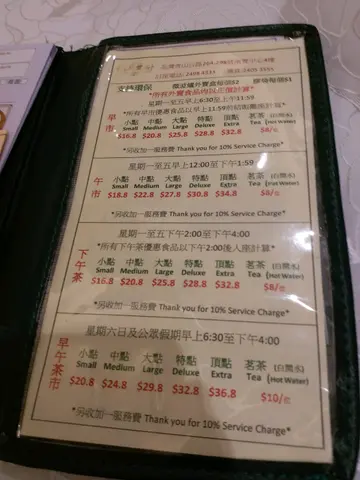 支持環保
*所有外賣食品均以正價計算*
星期一至五早上6:30至上午11:59
早市
小點 中點 大點 特點 頂點 茗茶 (白開水)
Small Medium Large Deluxe Extra Tea (Hot Water)
$16.8 $20.8 $25.8 $28.8 $32.8 $8/位
*另收加一服務費 Thank you for 10% Service Charge*
星期一至五早上12:00至下午1:59
午市
小點 中點 大點 特點 頂點 茗茶 (白開水)
Small Medium Large Deluxe Extra Tea (Hot Water)
$18.8 $22.8 $27.8 $30.8 $34.8 $8/位
*另收加一服務費 Thank you for 10% Service Charge*
星期一至五下午2:00至下午4:00
*所有下午茶優惠食品以下午2:00後入座計算*
下午茶
小點 中點 大點 特點 頂點 茗茶 (白開水)
Small Medium Large Deluxe Extra Tea (Hot Water)
$16.8 $20.8 $25.8 $28.8 $32.8 $8/位
*另收加一服務費 Thank you for 10% Service Charge*
星期六日及公眾假期早上6:30至下午4:00
早午茶市
小點 中點 大點 特點 頂點 茗茶 (白開水)
Small Medium Large Deluxe Extra Tea (Hot Water)
$20.8 $24.8 $29.8 $32.8 $36.8 $10/位
*另收加一服務費 Thank you for 10% Service Charge*